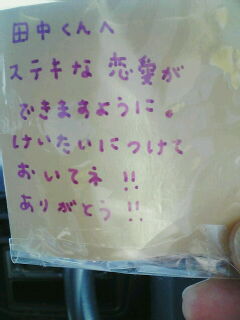 田中くんへ
ステキな 恋愛が
できますように。
けいたいにつけて
おいてネ!!
ありがとう!!